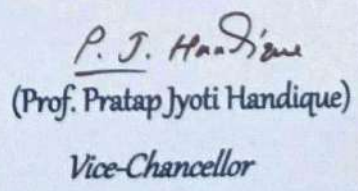 P. J. Handique
(Prof. Pratap Jyoti Handique)
Vice-Chancellor